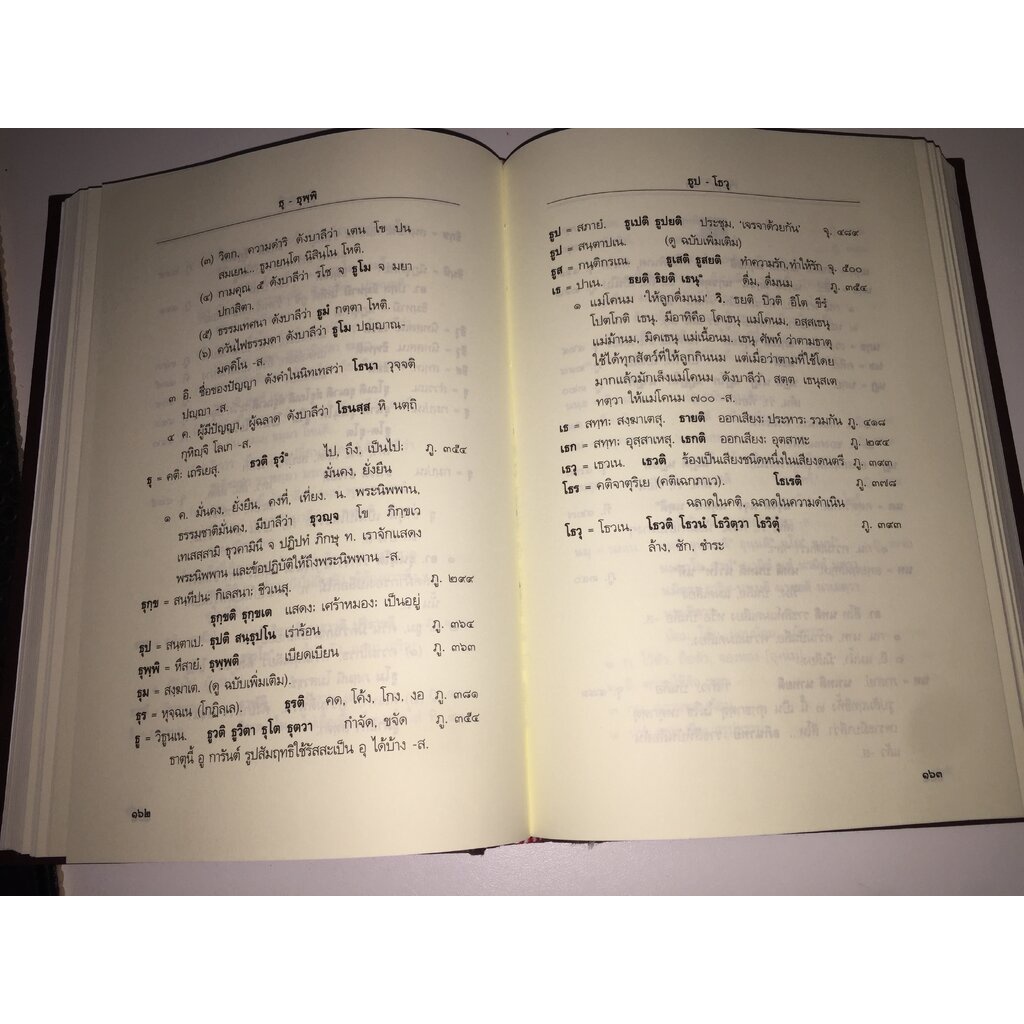 ธุ - ธุพฺพิ
(๓) วิตก, ความดำริ ดังบาลีว่า เตน โข ปน
สมเยน... ธูมายนฺโต นิสินฺโน โหติ.
(๔) กามคุณ ๕ ดังบาลีว่า รโช จ ธูโม จ มยา
ปกาสิตา.
(๕) ธรรมเทศนา ดังบาลีว่า ธูมํ กตฺตา โหติ.
(๖) ควันไฟธรรมดา ดังบาลีว่า ธูโม ปญฺญาณ-
มคฺคิโน -ส.
๓ อิ. ชื่อของปัญญา ดังคำในนิทเทสว่า โธนา วุจฺจติ
ปญฺญา -ส.
๔ ค. ผู้มีปัญญา, ผู้ฉลาด ดังบาลีว่า โธนสฺส หิ นตฺถิ
กุหิญฺจิ โลเก -ส.
ธุ = คติ: เถริเยสุ. ธวติ ธุวํ ไป, ถึง, เป็นไป: ภู. ๓๕๔
มั่นคง, ยั่งยืน
๑ ค. มั่นคง, ยั่งยืน, คงที่, เที่ยง. น. พระนิพพาน,
ธรรมชาติมั่นคง, มีบาลีว่า ธุวญฺจ โข ภิกฺขเว
เทเสสฺสามิ ธุวคามินึ จ ปฏิปทํ ภิกษุ ท. เราจักแสดง
พระนิพพาน และข้อปฏิบัติให้ถึงพระนิพพาน -ส.
ธุกฺข = สนฺทีปน: กิเลสนา: ชีวเนสุ. ภู. ๒๙๙
ธุกฺขติ ธุกฺขเต แสดง: เศร้าหมอง: เป็นอยู่
ธุป = สนฺตาเป. ธุปติ สนฺธุปโน เร่าร้อน ภู. ๓๖๔
ธุพฺพิ = หึสายํ. ธุพฺพติ เบียดเบียน ภู. ๓๖๓
ธุม = สงฺฆาเต. (ดู ฉบับเพิ่มเติม).
ธุร = หุจฺฉเน (โกฏิลฺเล). ธุรติ คด, โค้ง, โกง, งอ ภู. ๓๘๑
ธู = วิธูนเน. ธูวติ ธูวิตา ธุโต ธุตวา กำจัด, ขจัด ภู. ๓๕๔
ธาตุนี้ อู การันต์ รูปสัมฤทธิใช้รัสสะเป็น อุ ได้บ้าง -ส.
๑๖๒
ธูป - โธวุ
ธูป = สภายํ. ธูเปติ ธูปยติ ประชุม, 'เจรจาด้วยกัน' จุ. ๔๘๙
ธูป = สนฺตาปเน. (ดู ฉบับเพิ่มเติม)
ธูส = กนฺติกรเณ. ธูเสติ ธูสยติ ทำความรัก, ทำให้รัก จุ. ๕๐๐
เธ = ปาเน. ธยติ ธิยติ เธนุ ดื่ม, ดื่มนม ภู. ๓๕๔
๑ แม่โคนม 'ให้ลูกดื่มนม' วิ. ธยติ ปิวติ อิโต ขีรํ
โปตโกติ เธนุ. มีอาทิคือ โคเธนุ แม่โคนม, อสฺสเธนุ
แม่ม้านม, มิคเธนุ แม่เนื้อนม. เธนุ ศัพท์ ว่าตามธาตุ
ใช้ได้ทุกสัตว์ที่ให้ลูกกินนม แต่เมื่อว่าตามที่ใช้โดย
มากแล้วมักเล็งแม่โคนม ดังบาลีว่า สตฺต เธนุสเต
ทตฺวา ให้แม่โคนม ๗๐๐ -ส.
เธ = สทฺท: สงฺฆาเตสุ. ธายติ ออกเสียง: ประหาร: รวมกัน ภู. ๔๑๘
เธก = สทฺท: อุสฺสาเหสุ. เธกติ ออกเสียง: อุตสาหะ ภู. ๒๙๔
เธวุ = เธวเน. เธวติ ร้องเป็นเสียงชนิดหนึ่งในเสียงดนตรี ภู. ๓๙๓
โธร = คติจาตุริเย (คติเฉกภาเว). โธเรติ ภู. ๓๗๘
ฉลาดในคติ, ฉลาดในความดำเนิน
โธวุ = โธวเน. โธวติ โธวนํ โธวิตฺวา โธวิตุํ ภู. ๓๙๓
ล้าง, ซัก, ชำระ
๑๖๓